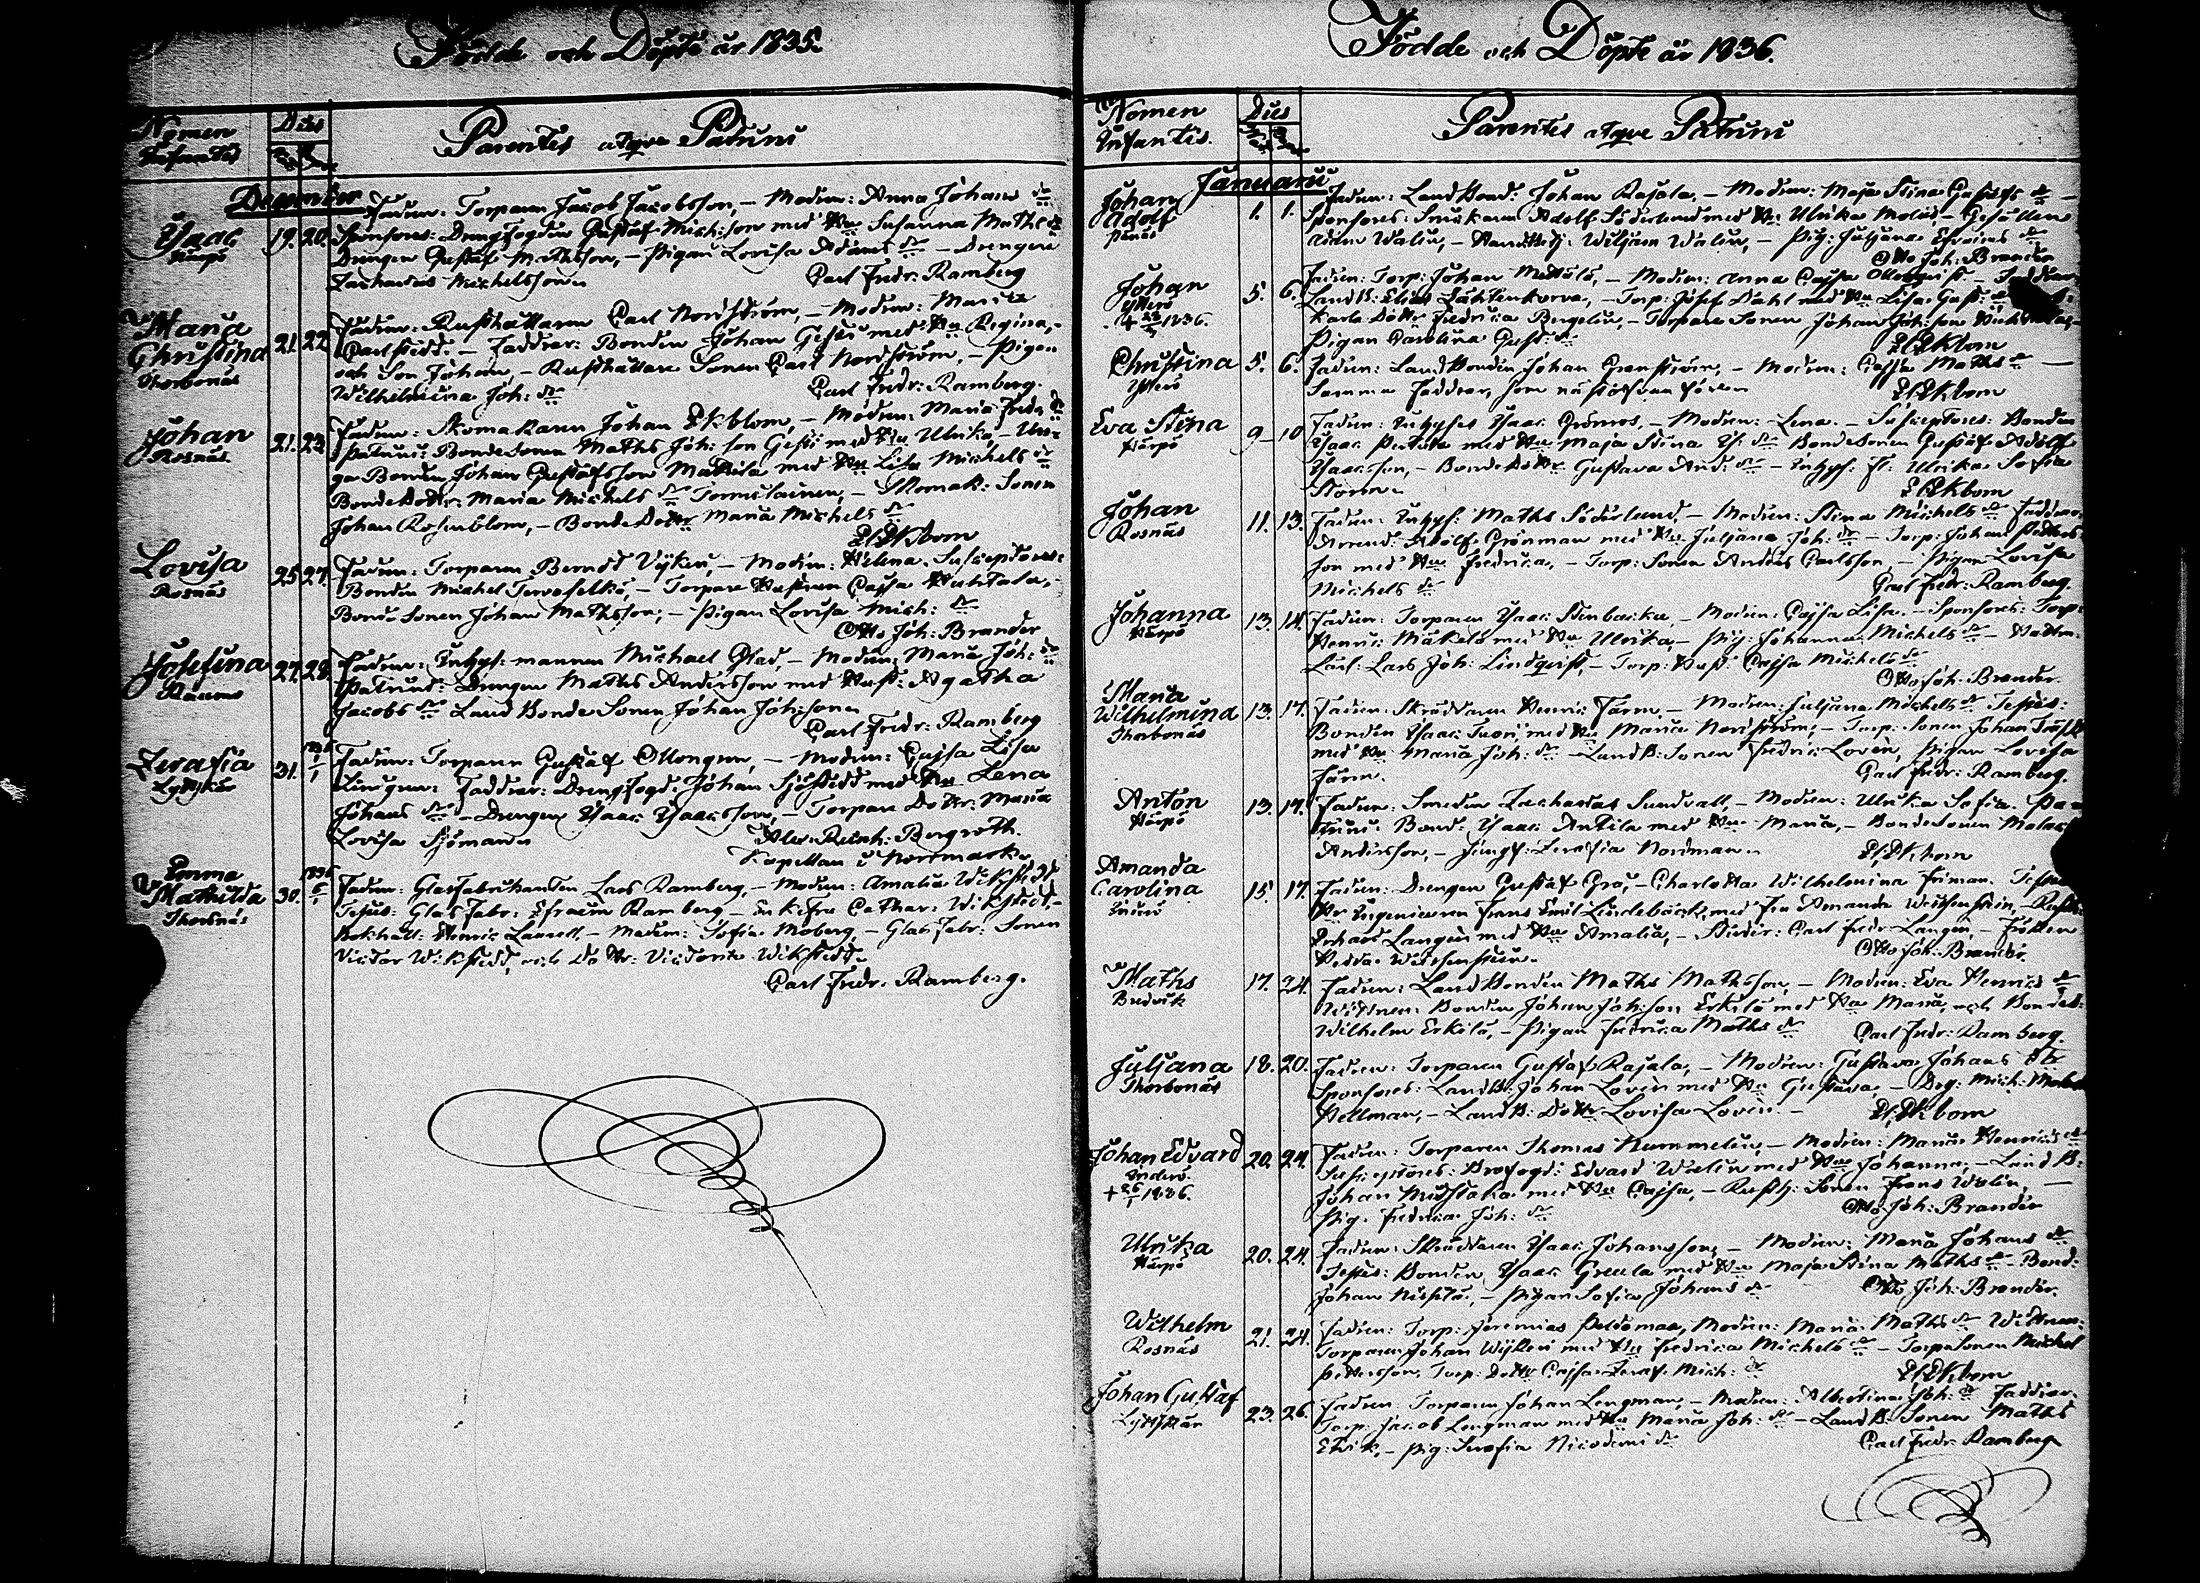 Födde och Döpte år 1835.
Nomen Infantis
Dies
Parentes atqve Patrini
December
Isaac
19. 20.
Fadren: Torparen Jacob Jacobsson, – Modren: Anna Johans dr
Sponsores: Drengfogden Gustaf Mich:son med Hu Susanna Maths dr
Drengen Gustaf Mathsson, – Pigan Lovisa Adams dr – Drengen
Zacharias Michelsson
Carl Fredr: Ramberg
Maria
Christina
Thorbonäs
21. 22.
Fadren: Rusthållaren Carl Nordström, – Modren: Maria
Carlstedt. – Faddrar: Bonden Johan Gestri med Hu Regina,
och Son Johan, – Rusthållare Sonen Carl Nordström, – Pigan
Wilhelmina Joh: dr
Carl Fredr: Ramberg.
Johan
Rosnäs
21. 23.
Fadren: Skomakaren Johan Ekblom, – Modren: Maria Fredr: dr
Patrini: Bondesonen Maths Joh:son Gestri med Hu Ulrika, – Un-
ga Bonden Johan Gustafsson Mattila med Hu Lisa Michels dr
BondeDottr: Maria Michels dr Tornulainen, – Skomak: Sonen
Johan Rosenblom, – BondeDottr Maria Michels dr
El. Ekbom
Lovisa
Rosnäs
25. 27.
Fadren: Torparen Berndt Vyken, – Modren: Helena. Susceptores:
Bonden Michel Tervaselkä, – Torpare Hustrun Cajsa Huhtala,
Bonde Sonen Johan Mathsson, – Pigan Lovisa Mich: dr
Otto Joh: Brander
Josefina
Räumo
27. 28.
Fadren: Inhys: mannen Michael Glad, – Modren: Maria Joh: dr
Patrini: Drengen Maths Andersson med Hust: Agatha
Jacobs dr Land Bonde Sonen Johan Joh:son
Carl Fredr: Ramberg
Serafia
31.
Fadren: Torparen Gustaf Ollongren, – Modren: Cajsa Lisa
Lingren: Faddrar: Drengfogd: Johan Sjöstedt med Hu Lena
Johans dr – Drengen Isaac Isaacsson, – Torpare Dottr: Maria
Lovisa Sjöman
Alex: Reinh: Bergroth.
Kapellan i Norrmark
Emma
Mathilda
Thorsnäs
30.
Fadren: Glasfabrikanten Lars Ramberg, – Modren: Amalia Wikstedt
Testes: Glas Fabr: Efraim Ramberg – Enkefru Cathar: Wikstedt, –
Bokhåll: Henric Laurell, – Madem: Sofia Moberg, – Glas Fabr: Sonen
Victor Wikstedt, och Dottr: Victoria Wikstedt.
Carl Fredr: Ramberg.
Födde och Döpte år 1836.
Nomen Infantis.
Dies
Parentes atqve Patrini
Januarii
Johan
Adolf
1. 1.
Fadren: Land Bond: Johan Rajala. – Modren: Maja Stina Gustafs dr –
Sponsores: Snickaren Adolf Söderlund med Hu Ulrika Molin – Gesällen
Adam Walin, – Handtv:lj: Wiljam Walin, – Pig: Juljana Efraims dr
Otto Joh: Brander
Johan
Ytterö
1836.
5. 6.
Fadren: Torp: Johan Mattala, – Modren: Anna Cajsa Ollonqvist –
LandB: Elias Lähtenkorva, – Torp: Josef Dahl med Hu Lisa Gust: dr
Karla Dottr Fredrica Bergelin, – Torpare Sonen Johan Joh:son
Pigan Carolina Gust: dr
El. Ekbom
Christina
Ytterö
5. 6.
Fadren: LandBonden Johan Grönström, – Modren: Cajsa Maths dr –
Samma Faddrar, som nästofvan före
El. Ekbom
Eva Stina
9. 10
Fadren: Inhyses Isaac Grönroos, – Modren: Lena. – Susceptores: Bonden
Isaac Pietola med Hu Maja Stina Is: dr Bondesonen Gustaf Adolf
Isaacsson, – BondeDottr Gustava And: dr – Inhys: Fl: Ulrika Sofia
Storm
El. Ekbom
Johan
Rosnäs
11. 13.
Fadren: Inhys: Maths Söderlund, – Modren: Stina Michels dr Faddrar:
Arrend: Adolf Grönman med Hu Juljana Joh: dr – Torp: Johan Petters
son med Hu Fredrica, – Torp: Sonen Anders Carlsson, – Pigan Lovisa
Michels dr
Carl Fredr: Ramberg.
Johanna
13. 14.
Fadren: Torparen Isaac Stenbacka, – Modren: Cajsa Lisa. – Sponsores: Torp:
Henric Mäkelä med Hu Ulrika, – Pig: Johanna Michels dr –
Lars Joh: Lindqvist, – Torp: Hust: Cajsa Michels dr
Otto Joh: Brander.
Maria
Wilhelmina
Thorbonäs
13. 17.
Fadren: Skräddaren Henric Färm, – Modren: Juljana Michels dr Testes:
Bonden Isaac Tuori med Hu Maria Nordström, – Torp: Sonen Johan
med Hu Maria Joh: dr – Land B: Sonen Fredric Lovén, Pigan Lovisa
Färm.
Carl Fredr: Ramberg.
Anton
13. 17.
Fadren: Smeden Zacharias Sundvall, – Modren: Ulrika Sofia. Pa-
trini: Bond: Isaac Antila med Hu Maria, – Bondesonen
Andersson, – Jungf: Serafia Nordman
El. Ekbom
Amanda
Carolina
15. 17.
Fadren: Drengen Gustaf Grå, – Charlotta Wilhelmina Friman. Testes:
Hr Ingenieuren Frans Emil Lindebäck, med Fru Amanda Weissenstein, –
Erhard Langén med Hu Amalia, – Studer: Carl Fredr: Langén, – Fröken
Hedda Weissenstein.
Otto Joh: Brander.
Maths
Budvik
17. 24.
Fadren: Land Bonden Maths Mathsson, – Modren: Eva Henrics dr
Wittnen: Bonden Johan Joh:son Erkilä med Hu Maria, och Bondes:
Wilhelm Erkilä, – Pigan Fredrica Maths dr
Carl Fredr: Ramberg.
Juljana
Thorbonäs
18. 20.
Fadren: Torparen Gustaf Rajala, – Modren: Gustava Johans dr
Sponsores: LandB: Johan Lovén med Hu Gustava, – Drg: Mich:
Hellman, – Land B: Dottr Lovisa Lovén. –
El. Ekbom
Johan Edvard
1836.
20. 24.
Fadren: Torparen Thomas Nummelin, – Modren: Maria Henrics dr
Susceptores: Brofogd: Edvard Walin med Hu Johanna, – Land B:
Johan Mustaka med Hu Cajsa, – Rusth: Sonen Frans Walin, –
Pig. Fredrica Joh: dr
Otto Joh: Brander
Ulrika
20. 24.
Fadren: Skräddaren Isaac Johansson, – Modren: Maria Johans dr
Testes: Bonden Isaac Greula med Hu Maja Stina Maths dr – Bond:
Johan Nispila, – Pigan Sofia Johans dr
Otto Joh: Brander.
Wilhelm
Rosnäs
21. 24.
Fadren: Torp: Jeremias Peldomaa, Modren: Maria Maths dr Wittnen:
Torparen Johan Wyken med Hu Fredrica Michels dr – Torpe Sonen Michel
Pettersson, Torp: Dottr Cajsa Seraf: Mich: dr
El. Ekbom
Johan Gustaf
23. 26.
Fadren Torparen Johan Lengman, – Modren: Albertina Joh: dr Faddrar:
Torp: Jacob Lengman med Hu Maria Joh: dr – Land B: Sonen Maths
Etvik, – Pig: Serafia Nicodemi dr
Carl Fredr: Ramberg